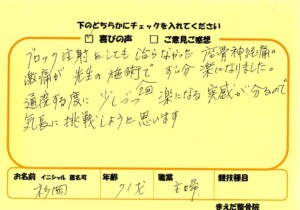 下のどちらかにチェックを入れてください
☑ 喜びの声 □ ご意見ご感想
ブロック注射としても治らなかった 座骨神経痛の
激痛が 先生の施術で ずい分 楽になりました。
通院する度に 少しづつ 楽になる 実感が分るので
気長に 挑戦しようと思います
お名前 イニシャル 匿名可 年齢 職業 競技種目
杉岡 71才 主婦
まえだ整骨院